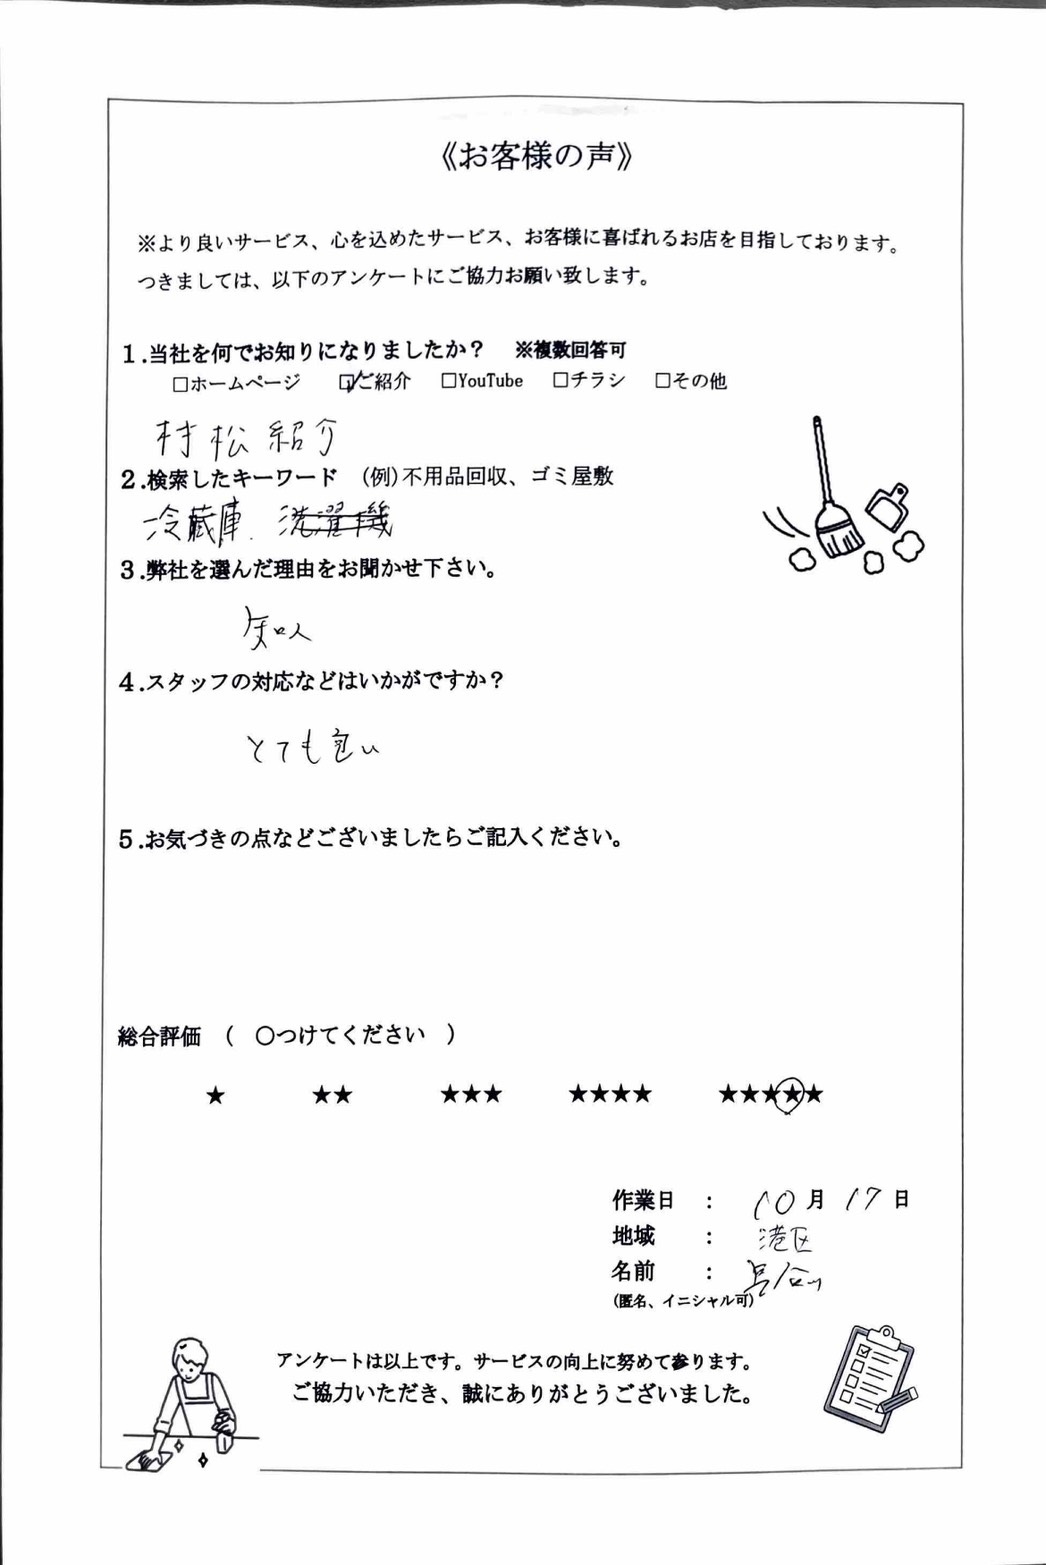 《お客様の声》
※より良いサービス、心を込めたサービス、お客様に喜ばれるお店を目指しております。
つきましては、以下のアンケートにご協力お願い致します。
１.当社を何でお知りになりましたか？　※複数回答可
□ホームページ　☑ご紹介　□YouTube　□チラシ　□その他
村松紹介
２.検索したキーワード　(例)不用品回収、ゴミ屋敷
冷蔵庫. 洗濯機
３.弊社を選んだ理由をお聞かせ下さい。
知人
４.スタッフの対応などはいかがですか？
とても良い
５.お気づきの点などございましたらご記入ください。
総合評価　（　〇つけてください　）
★　★★　★★★　★★★★　★★★★★
作業日　：　10月17日
地域　：　港区
名前　：　長谷川
(匿名、イニシャル可)
アンケートは以上です。サービスの向上に努めて参ります。
ご協力いただき、誠にありがとうございました。